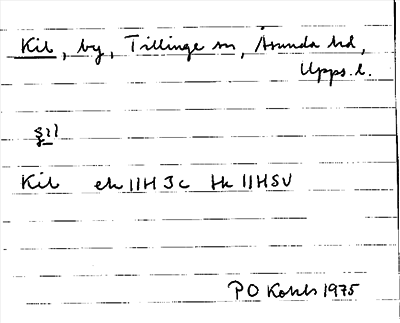 Kil, by, Tillinge sn, Åsunda hd,
Upps. l.
Kil ek 11H 3c hk 11HSV
1975